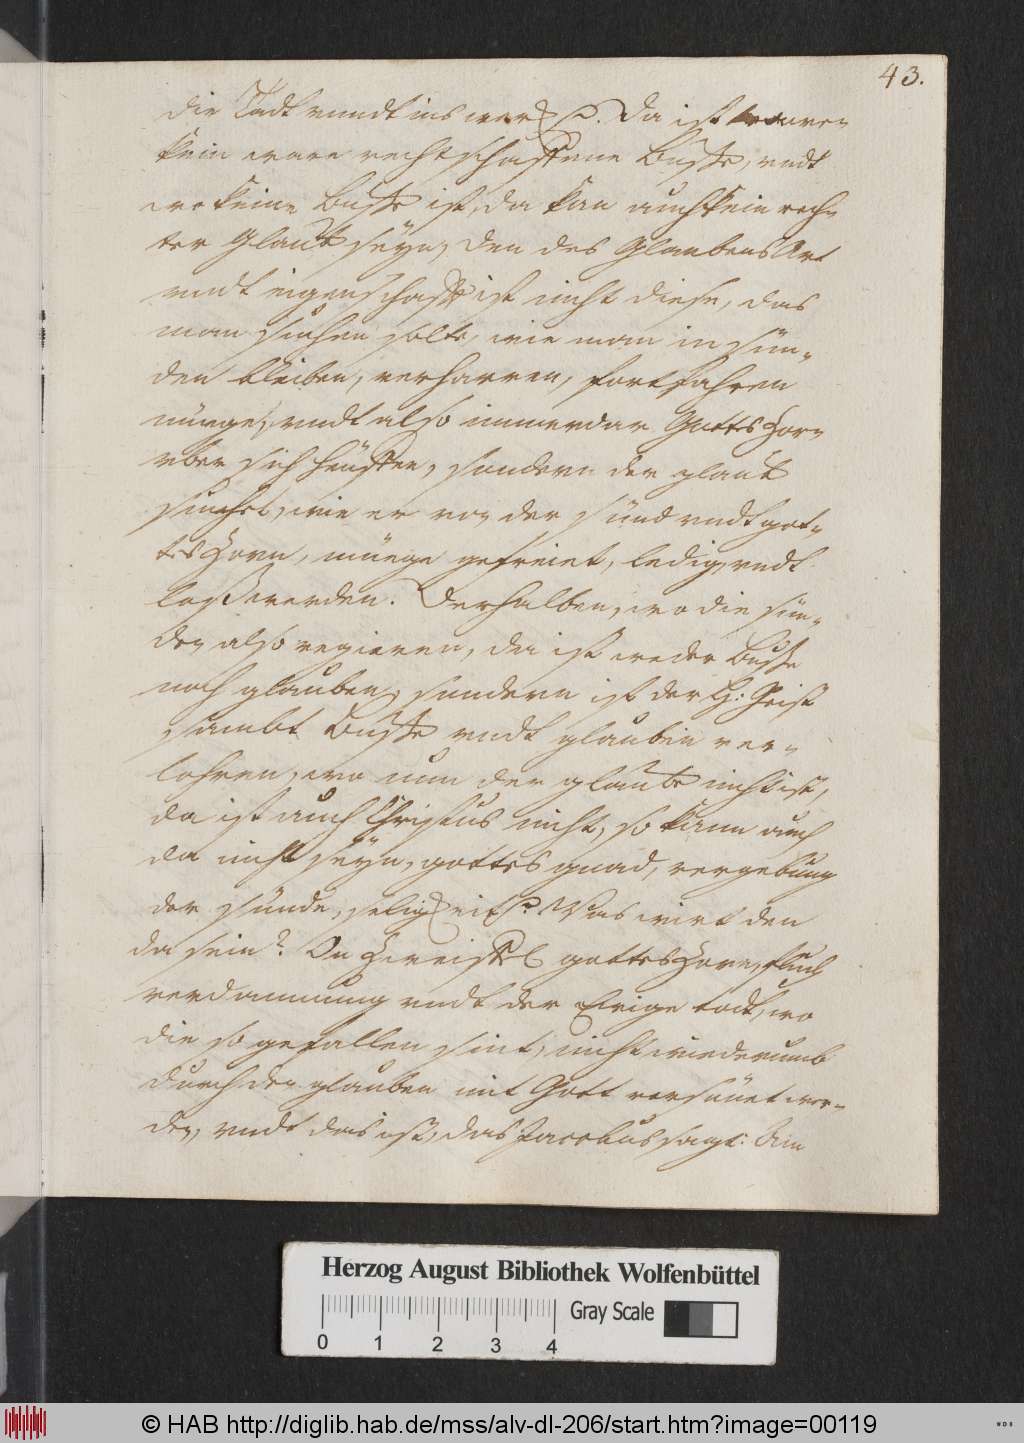 43.
die Tadt vnndt ins werck ꝛc. Da ist
kein ware rechtschaffene Buße, vndt
wo keine Buße ist, da kan auch kein rech-
ter Glaub seyn, den des Glaubens Art
vndt eigenschafft ist nicht diese, das
man suchen solte, wie man in sün-
den bleiben, verharren, fortfahren
müege, vndt also immerdar Gottes Zorn
vber sich heuffen, sondern der glaub
suchet, wie er von der sünd vndt got-
tes Zorn, müege gefreiet, ledig, vndt
loß werden. Derhalben, wo die sün-
den also regieren, da ist weder Buße
noch glauben, sondern ist der H: Geist
sambt Buße vndt glauben ver-
lohren, wo nun der glaube nicht ist,
da ist auch Christus nicht, so kann auch
da nicht seyn, gottes gnad, vergebung
der sünde, seligkeit ꝛc. Was wirt den
da sein? On Zweiffel gottes Zorn, fluch
verdammung vndt der Ewige todt, wo
die so gefallen sint, nicht wiederumb
durch den glauben mit Gott versünet wer-
den, vndt das ist, das Jacobus sagt: Ein
Herzog August Bibliothek Wolfenbüttel
0 1 2 3 4
Gray Scale
© HAB http://diglib.hab.de/mss/alv-dl-206/start.htm?image=00119